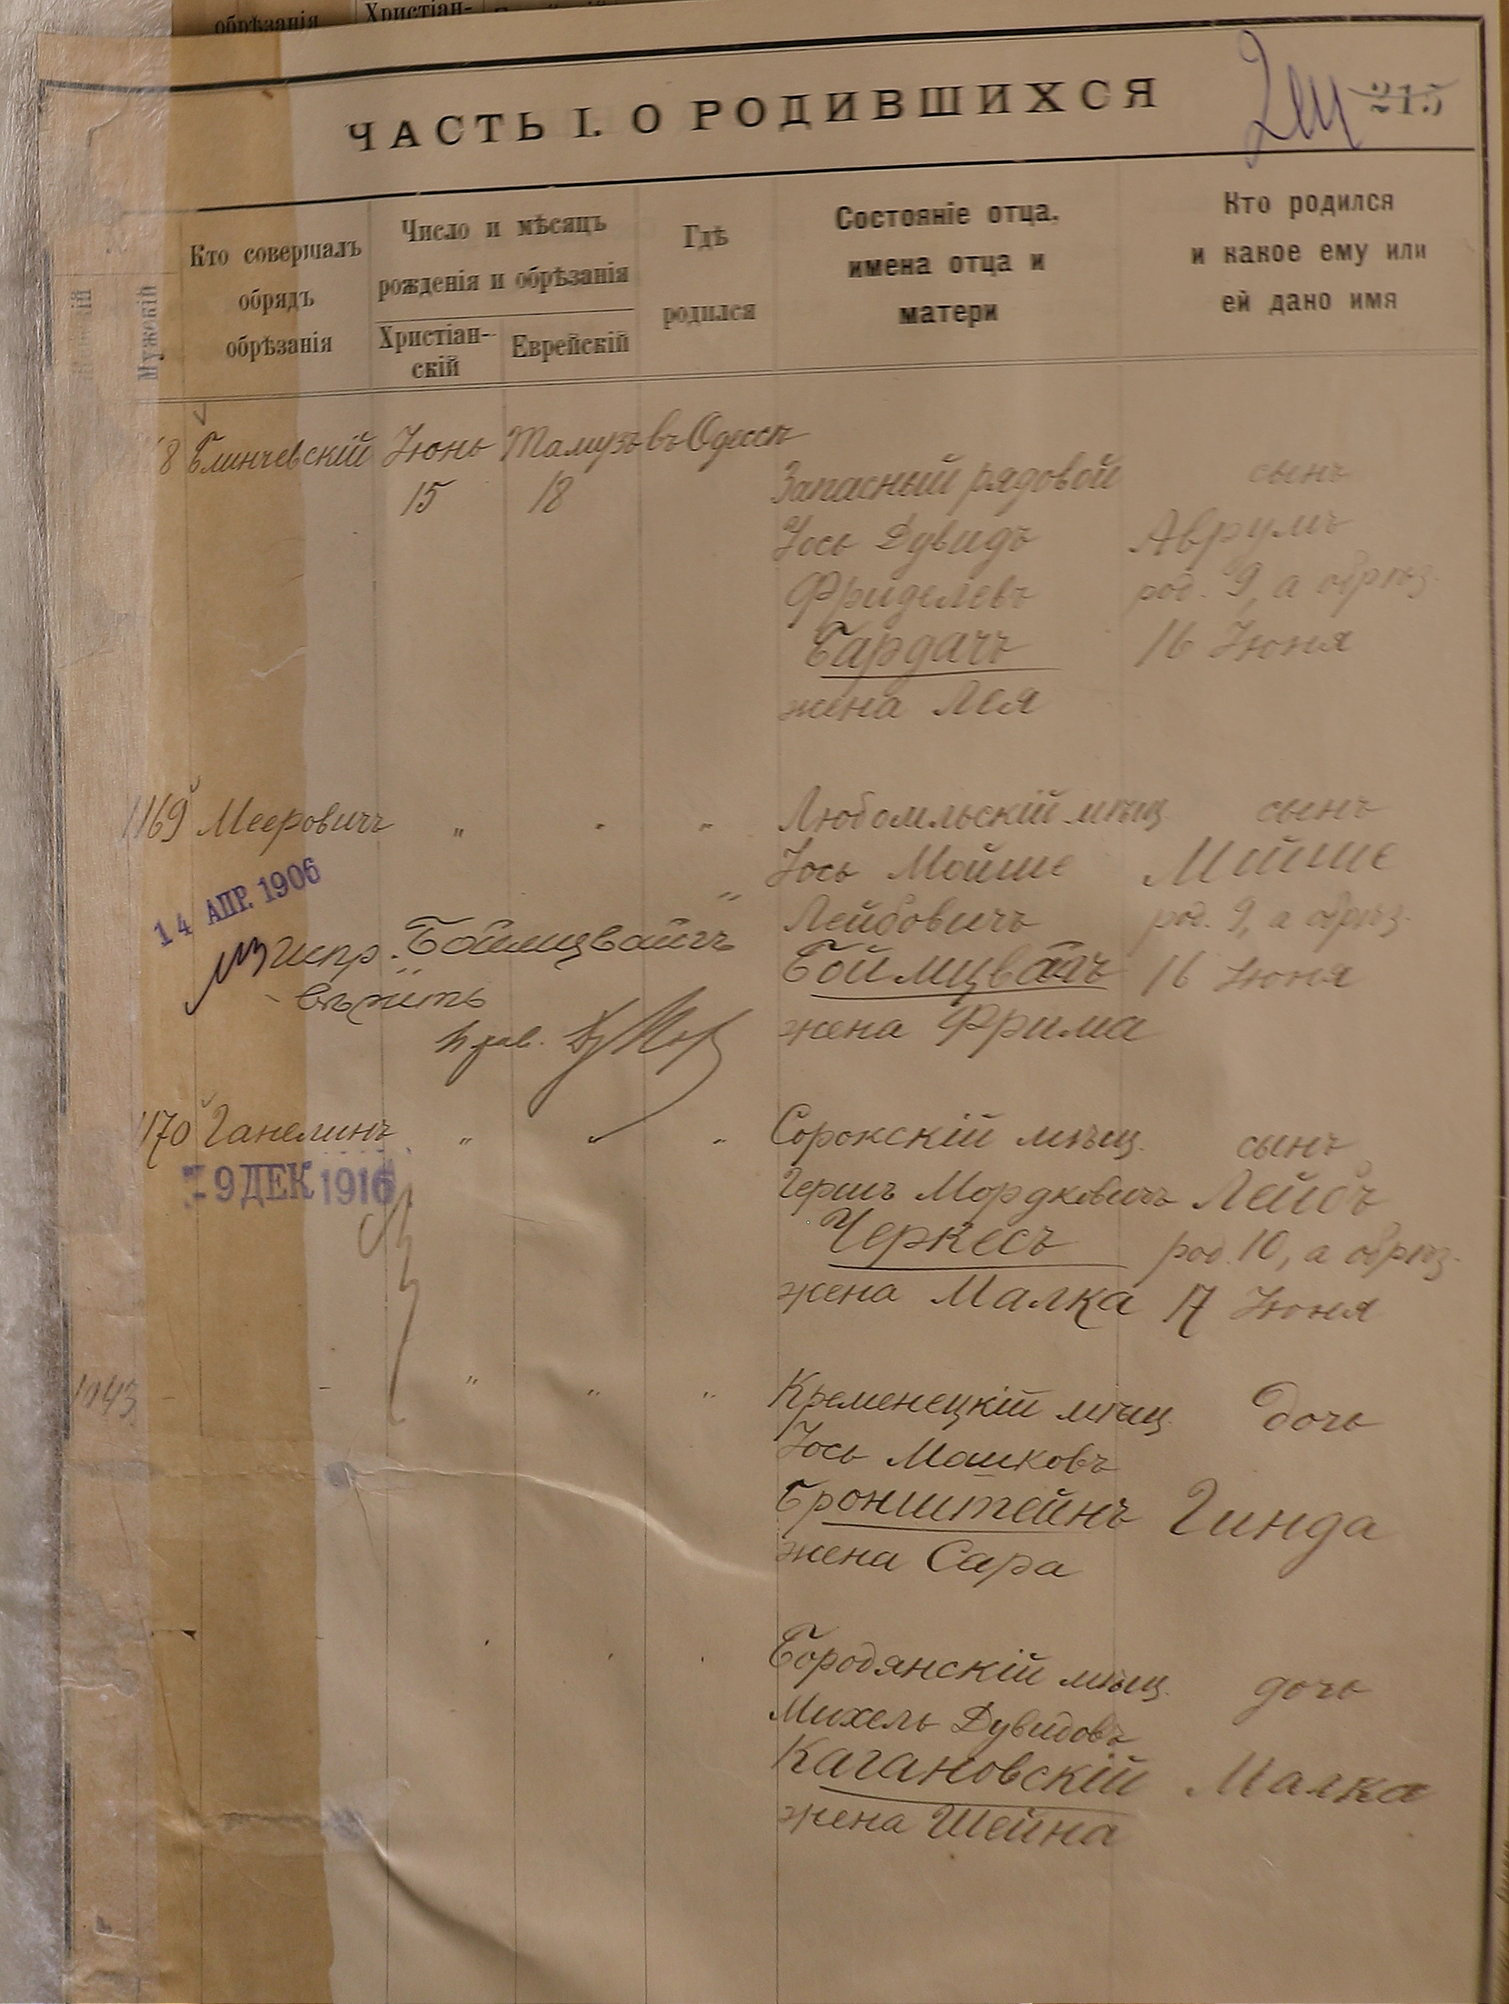 обрѣзанія
Христіан-
ЧАСТЬ I. О РОДИВШИХСЯ
215
Женскій
Мужскій
Кто совершалъ
обрядъ
обрѣзанія
Число и мѣсяцъ
рожденія и обрѣзанія
Христіан-
скій
Еврейскій
Гдѣ
родился
Состояніе отца,
имена отца и
матери
Кто родился
и какое ему или
ей дано имя
68 Блинчевскій Іюнь Тамузъ въ Одессѣ
15 18
Запасный рядовой сынъ
Іось Дувидъ Аврумъ
Фриделевъ род. 9, а обрѣз.
Бардачъ 16 Іюня
жена Лея
1169 Мееровичъ " " " Любомльскій мѣщ. сынъ
14 АПР. 1906
Іось Мойше Мойше
"
Лейбовичъ род. 9, а обрѣз.
испр. Боймцвайгъ
Боймцвагъ 16 Іюня
вѣрить
жена Фрима
1170 Ганелинъ " " Сорокскій мѣщ. сынъ
9 ДЕК 1916
Гершъ Мордковичъ Лейбъ
Черкесъ род. 10, а обрѣз.
жена Малка 17 Іюня
1043 - - " " " Кременецкій мѣщ. дочь
Іось Мошковъ
Бронштейнъ Гинда
жена Сара
Бородянскій мѣщ. дочь
Михель Дувидовъ
Кагановскій Малка
жена Шейна